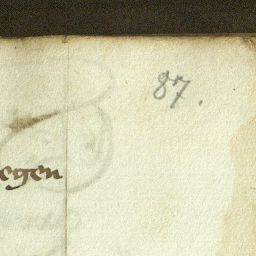 87.
egen